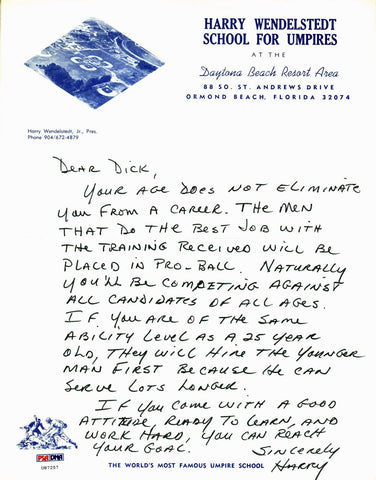 HARRY WENDELSTEDT
SCHOOL FOR UMPIRES
AT THE
Daytona Beach Resort Area
88 SO. ST. ANDREWS DRIVE
ORMOND BEACH, FLORIDA 32074
Harry Wendelstedt, Jr., Pres.
Phone 904/672-4879
DEAR DICK,
YOUR AGE DOES NOT ELIMINATE
YOU FROM A CAREER. THE MEN
THAT DO THE BEST JOB WITH
THE TRAINING RECEIVED WILL BE
PLACED IN PRO-BALL. NATURALLY
YOU'LL BE COMPETING AGAINST
ALL CANDIDATES OF ALL AGES.
IF YOU ARE OF THE SAME
ABILITY LEVEL AS A 25 YEAR
OLD, THEY WILL HIRE THE YOUNGER
MAN FIRST BECAUSE HE CAN
SERVE LOTS LONGER.
IF YOU COME WITH A GOOD
ATTITUDE, READY TO LEARN, AND
WORK HARD, YOU CAN REACH
YOUR GOAL.
SINCERELY
HARRY
PSA/DNA
THE WORLD'S MOST FAMOUS UMPIRE SCHOOL